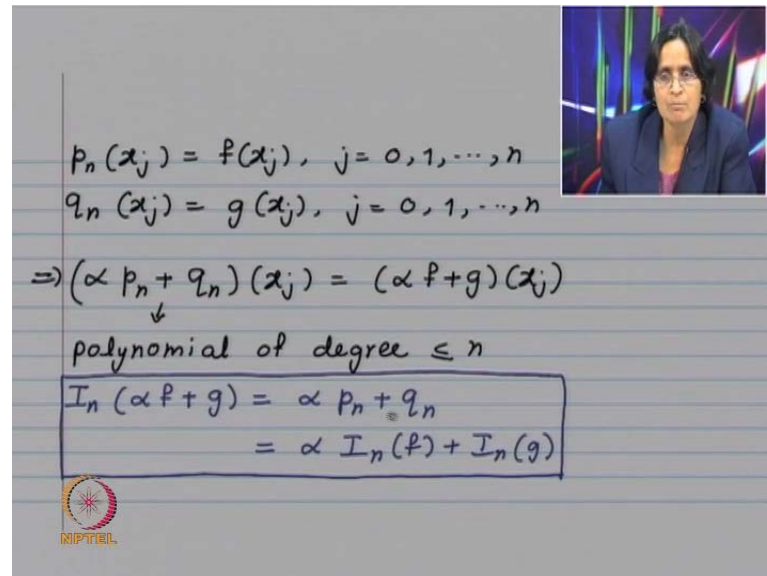 pₙ(xⱼ) = f(xⱼ), j = 0, 1, ..., n
qₙ(xⱼ) = g(xⱼ), j = 0, 1, ..., n
⇒ (α pₙ + qₙ)(xⱼ) = (α f + g)(xⱼ)
↓
polynomial of degree ≤ n
Iₙ(α f + g) = α pₙ + qₙ
= α Iₙ(f) + Iₙ(g)
NPTEL